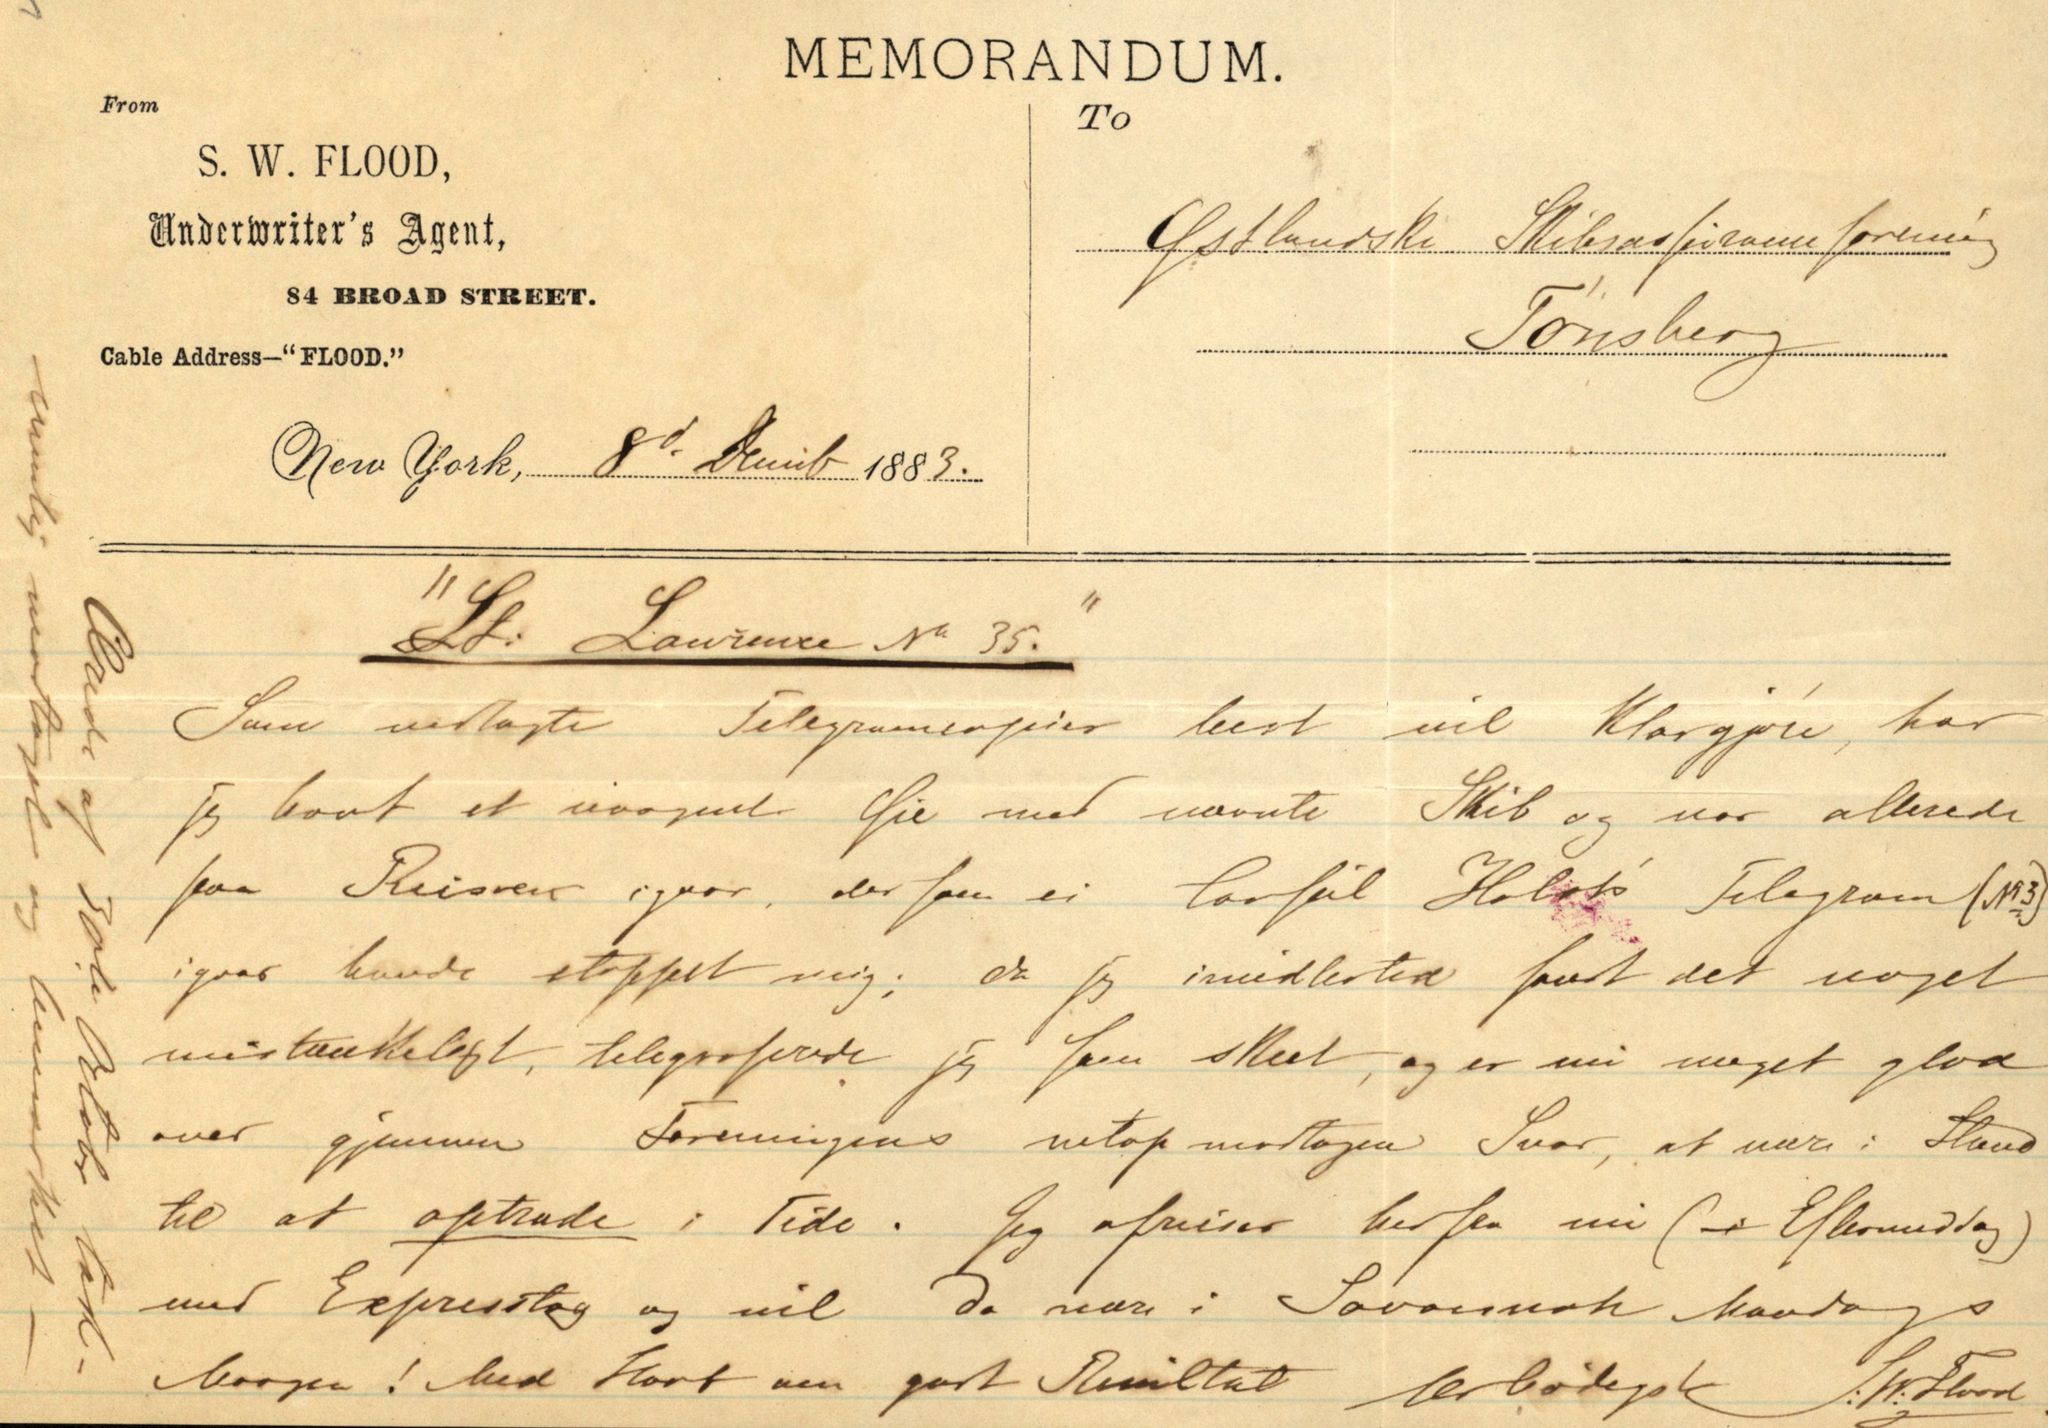 MEMORANDUM.
From
S. W. FLOOD,
Underwriter's Agent,
84 BROAD STREET.
Cable Address—"FLOOD."
New York, 8d. Decemb 1883.
To
Østlandske Skibsassuranceforening
Tønsberg
"St: Lawrence No 35."
Som vedlagte Telegramcopier bedst vil Klargjøre, har
jeg havt et vaagent Øie med nævnte Skib og var allerede
paa Reisen igaar, dersom ei Capt Telegram (No 3)
igaar havde stoppet mig; da jeg imidlertid fandt det noget
mistænkeligt, telegraferede jeg som skeet, og er nu meget glad
over gjennem Foreningens netop modtagen Svar, at være i Stand
til at optræde i Tide. Jeg afreiser herfra nu (i Eftermiddag)
med Expresstog og vil da være i Savannah Mandags
Morgen! Med Haab om godt Resultat Ærbødigst S. W. Flood
Eders af 20de Octobr tak-
nemlig modtagen og bemærket —